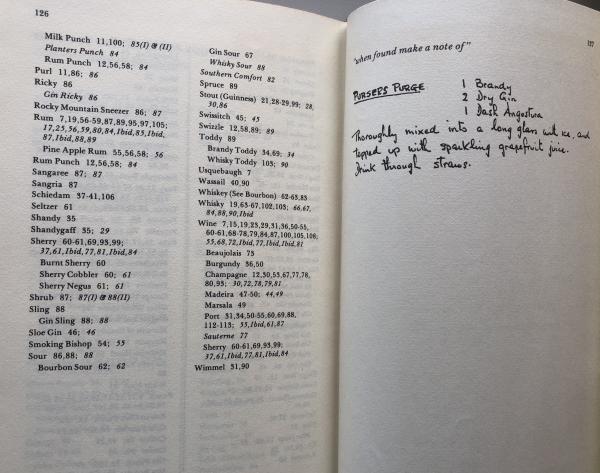 126
Milk Punch 11,100; 85(I) & (II)
Planters Punch 84
Rum Punch 12,56,58; 84
Purl 11,86; 86
Ricky 86
Gin Ricky 86
Rocky Mountain Sneezer 86; 87
Rum 7,19,56-59,87,89,95,97,105;
17,25,56,59,80,84,Ibid,85,Ibid,
87,Ibid,88,89
Pine Apple Rum 55,56,58; 56
Rum Punch 12,56,58; 84
Sangaree 87; 87
Sangria 87
Schiedam 37-41,106
Seltzer 61
Shandy 35
Shandygaff 35; 29
Sherry 60-61,69,93,99;
37,61,Ibid,77,81,Ibid,84
Burnt Sherry 60
Sherry Cobbler 60; 61
Sherry Negus 61; 61
Shrub 87; 87(I) & 88(II)
Sling 88
Gin Sling 88; 88
Sloe Gin 46; 46
Smoking Bishop 54; 55
Sour 86,88; 88
Bourbon Sour 62; 62
Gin Sour 67
Whisky Sour 88
Southern Comfort 82
Spruce 89
Stout (Guinness) 21,28-29,99; 28,
30,86
Swissitch 45; 45
Swizzle 12,58,89; 89
Toddy 89
Brandy Toddy 34,69; 34
Whisky Toddy 103; 90
Usquebaugh 7
Wassail 40,90
Whiskey (See Bourbon) 62-63,83
Whisky 19,63-67,102,103; 66,67,
84,88,90,Ibid
Wine 7,15,19,23,29,31,36,50-55,
60-61,68-78,79,84,87,100,105,106;
55,68,72,Ibid,77,Ibid,Ibid,81
Beaujolais 73
Burgundy 36,50
Champagne 12,30,53,67,77,78,
80,93; 30,72,78,79,81
Madeira 47-50; 44,49
Marsala 49
Port 31,34,50-55,60,69,88,
112-113; 53,Ibid,61,87
Sauterne 77
Sherry 60-61,69,93,99;
37,61,Ibid,77,81,Ibid,84
Wimmel 51,90
127
"when found make a note of"
PURSER'S PURGE
1 Brandy
2 Dry Gin
1 Dash Angostura
Thoroughly mixed into a long glass with ice, and
topped up with sparkling grapefruit juice.
Drink through straws.